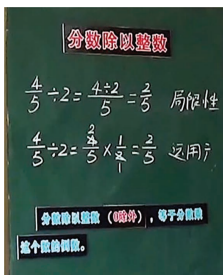 分数除以整数
4/5÷2=4÷2/5=2/5 局限性
4/5÷2=4/5×1/2=2/5 适用于
分数除以整数（0除外），等于分数乘
这个数的倒数。